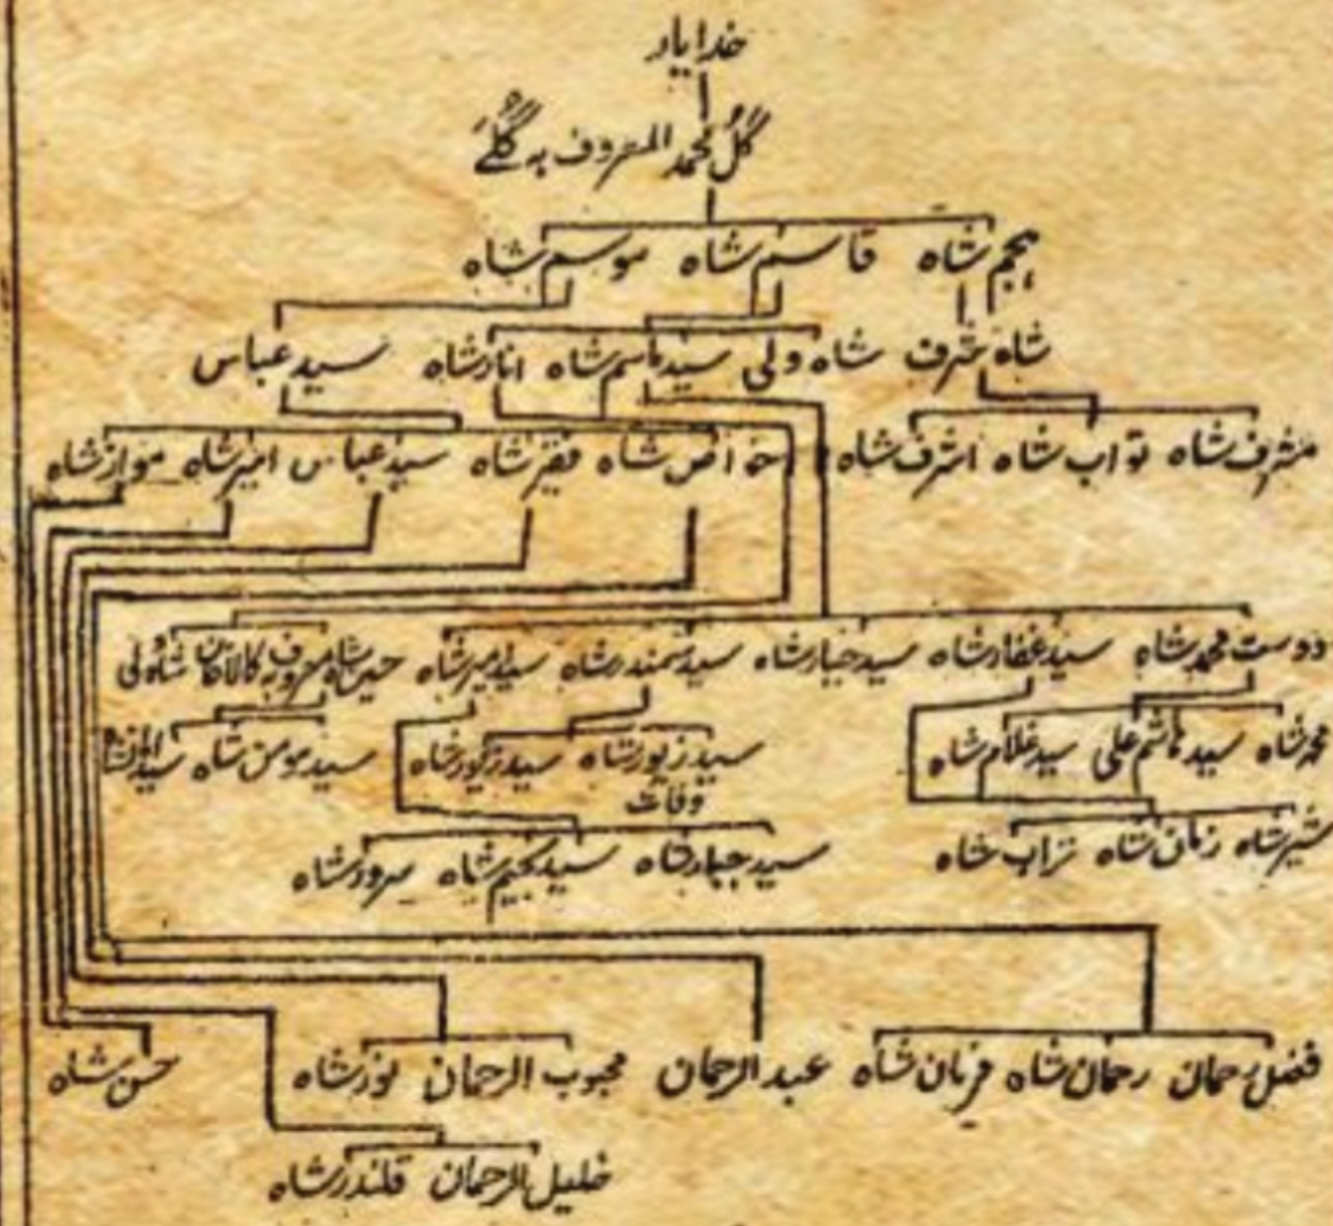 خدایار
گل محمد المعروف بہ گُلّے
نجم شاہ قاسم شاہ موسم شاہ
شاہ شرف شاہ ولی سید ہاشم شاہ انار شاہ سید عباس
مشرف شاہ نواب شاہ اشرف شاہ خواص شاہ فقیر شاہ سید عباس امیر شاہ مواز شاہ
دوست محمد شاہ سید غفار شاہ سید جبار شاہ سید سمندر شاہ سید امیر شاہ حسین شاہ معروف بہ کالا خان شاہ ولی
محمد شاہ سید ہاشم علی سید غلام شاہ سید زیور شاہ سید زگور شاہ سید مومن شاہ
وفات
شیر شاہ زمان شاہ تراب شاہ سید جبار شاہ سید نجیم شاہ سرور شاہ
فضل رحمان رحمان شاہ فرمان شاہ عبد الرحمان محبوب الرحمان نور شاہ حسن شاہ
خلیل الرحمان قلندر شاہ